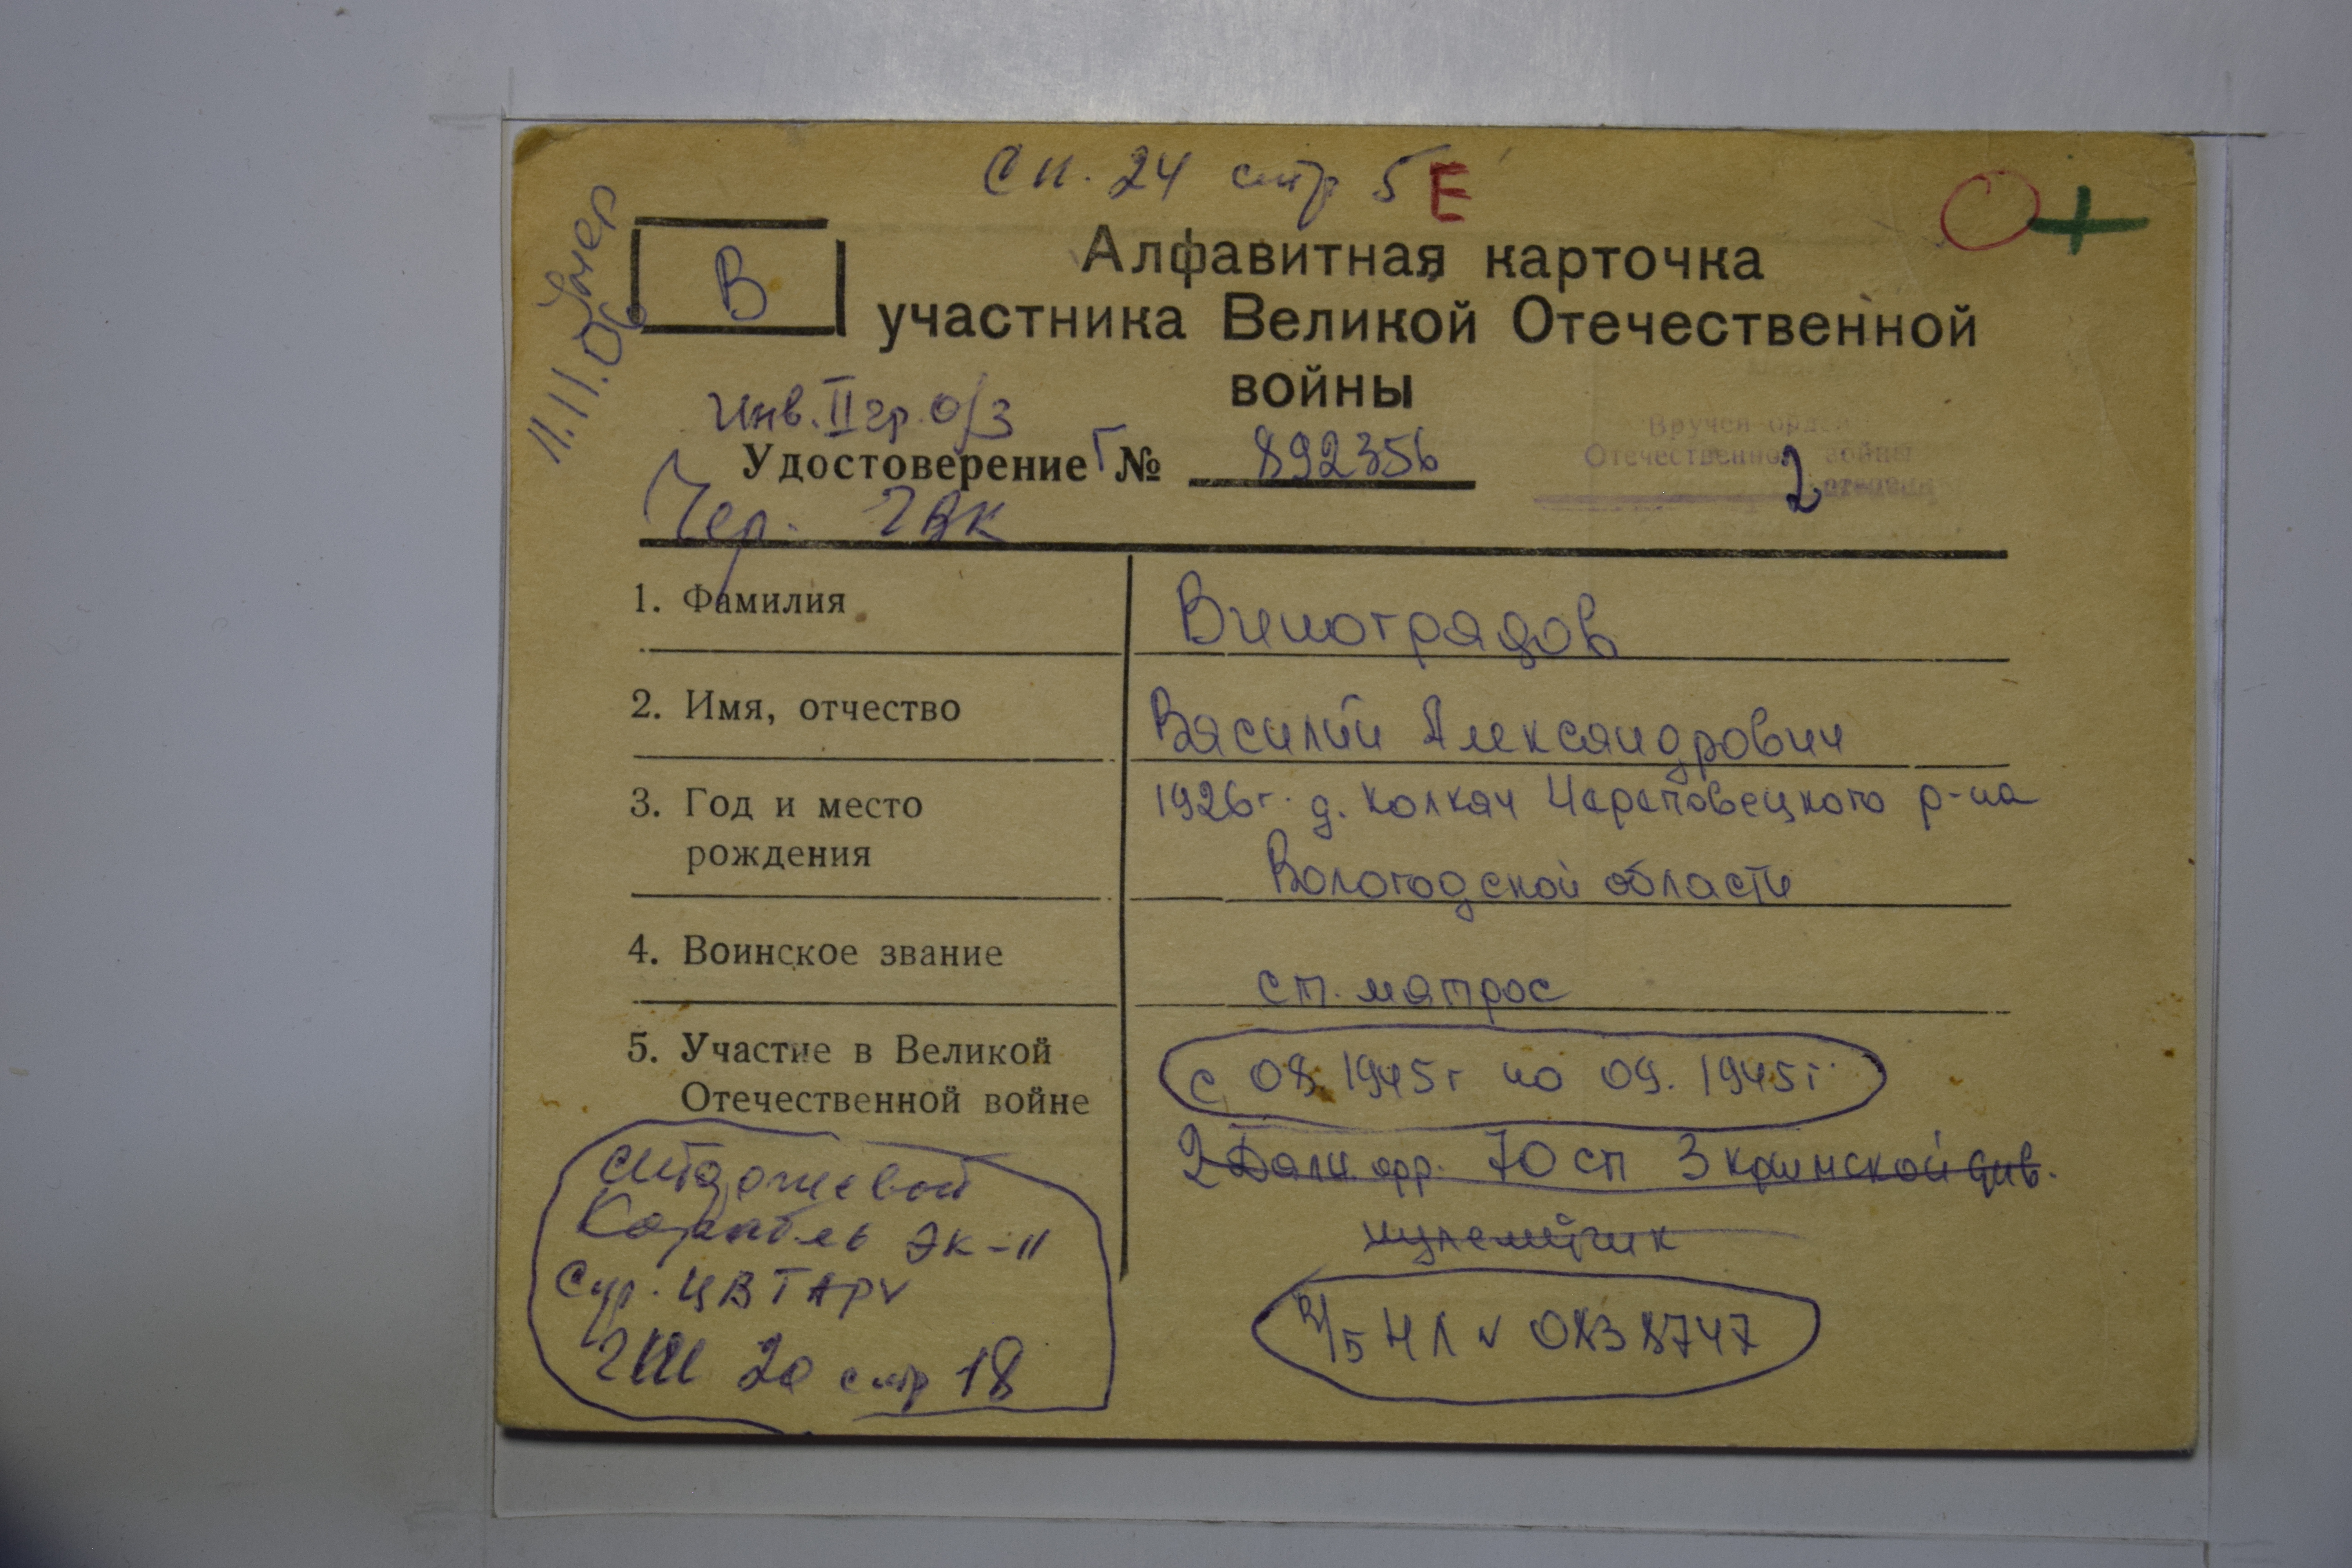 Сп. 24 стр 5 Е
умер
11.11.06
В
Алфавитная карточка
участника Великой Отечественной
войны
Инв. II гр. о/з
Удостоверение Г № 892356
Вручен орден
Отечественной войны
2 степени
Чер. ГВК
1. Фамилия
Виноградов
2. Имя, отчество
Василий Александрович
3. Год и место
рождения
1926г. д. Колкач Череповецкого р-на
Вологодской области
4. Воинское звание
ст. матрос
5. Участие в Великой
Отечественной войне
с 08. 1945г по 09. 1945г.
2 Дальн. фр. 70 сп 3 Крымской див.
пулемётчик
сторожевой
Корабль ЭК-11
ЦВТАРV
ГШ 20 стр 18
в/б НЛ v 0838747